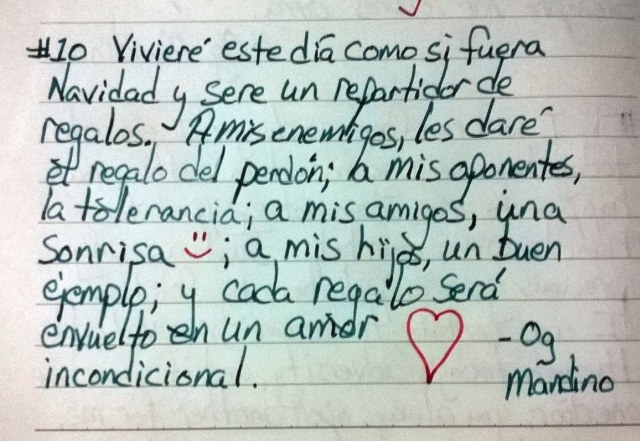 #10 Vivieré este día como si fuera
Navidad y sere un repartidor de
regalos. A mis enemigos, les daré
el regalo del perdón; a mis oponentes,
la tolerancia; a mis amigos, una
sonrisa ; a mis hijos, un buen
ejemplo; y cada regalo será
envuelto en un amor
incondicional.
- Og
Mandino